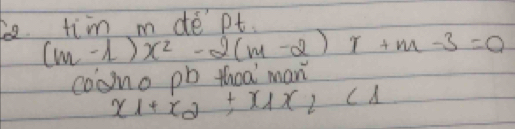 2. tìm m để pt.
(m-1)x² - 2(m-2)x + m - 3 = 0
có 2 no pb thoả mãn
x1 + x2 + x1x2 < 1